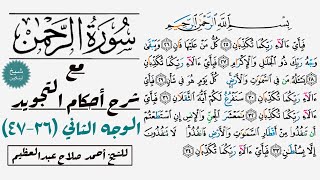 سورة الرحمن
مع
شرح أحكام التجويد
الوجه الثاني (٢٦-٤٧)
للشيخ: أحمد صلاح عبدالعظيم
بِسْمِ اللَّهِ الرَّحْمَٰنِ الرَّحِيمِ
فَبِأَيِّ ءَالَآءِ رَبِّكُمَا تُكَذِّبَانِ كُلُّ مَنْ عَلَيْهَا فَانٍ ٢٦ وَيَبْقَىٰ
وَجْهُ رَبِّكَ فَبِأَيِّ ءَالَآءِ رَبِّكُمَا تُكَذِّبَانِ
مَن فِي السَّمَٰوَٰتِ وَالْأَرْضِ كُلَّ يَوْمٍ هُوَ فِي شَأْنٍ ٢٩ فَبِأَيِّ
ءَالَآءِ رَبِّكُمَا تُكَذِّبَانِ ٣٠ سَنَفْرُغُ لَكُمْ أَيُّهَ الثَّقَلَانِ ٣١ فَبِأَيِّ
ءَالَآءِ رَبِّكُمَا تُكَذِّبَانِ ٣٢ يَٰمَعْشَرَ الْجِنِّ وَالْإِنسِ إِنِ اسْتَطَعْتُمْ
أَن تَنفُذُوا مِنْ أَقْطَارِ السَّمَٰوَٰتِ وَالْأَرْضِ فَانفُذُوا لَا تَنفُذُونَ
إِلَّا بِسُلْطَٰنٍ ٣٣ فَبِأَيِّ ءَالَآءِ رَبِّكُمَا تُكَذِّبَانِ ٣٤